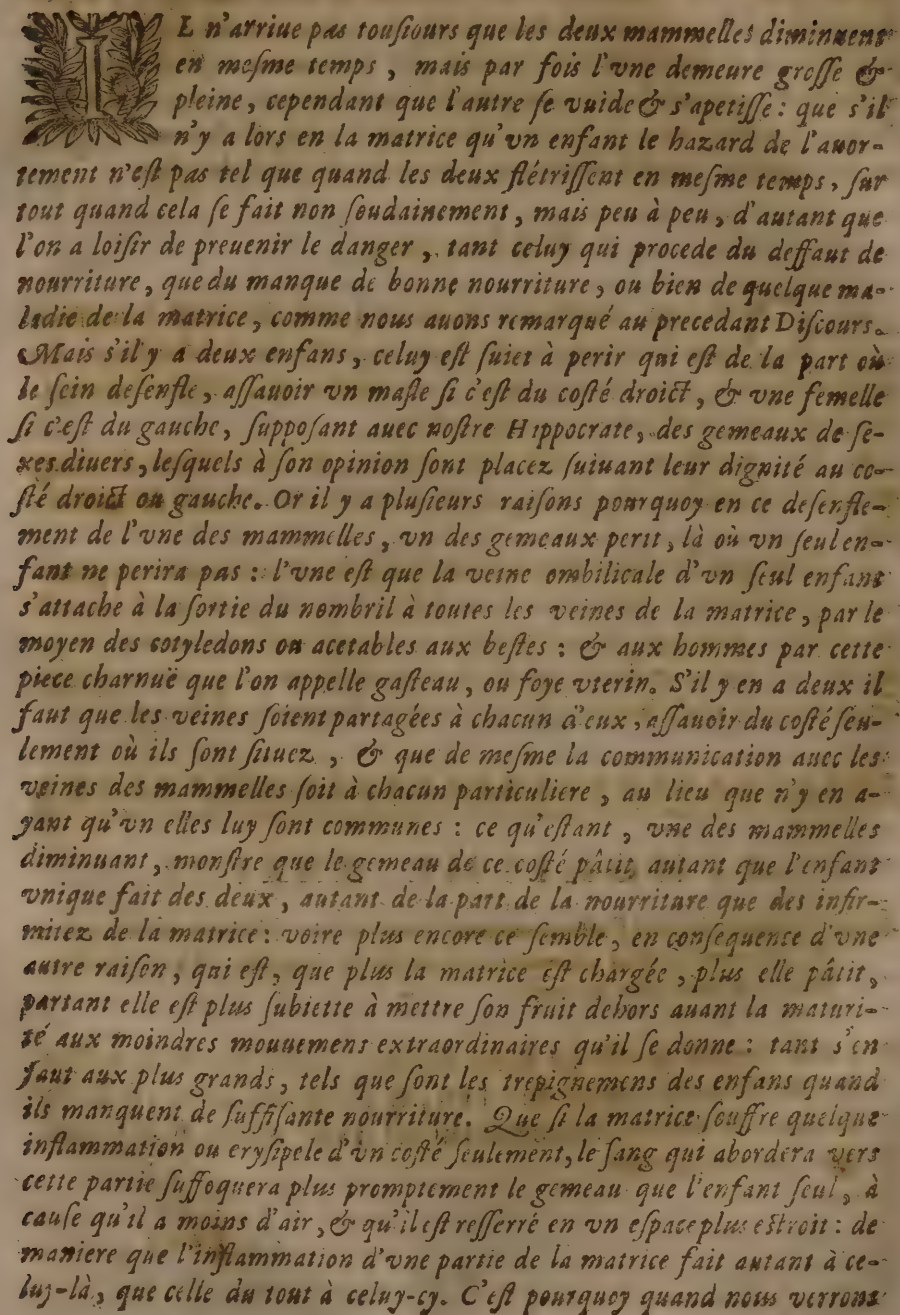 IL n'arriue pas touſiours que les deux mammelles diminuent
en meſme temps, mais par fois l'vne demeure groſſe &
pleine, cependant que l'autre ſe vuide & s'apetiſſe: que s'il
n'y a lors en la matrice qu'vn enfant le hazard de l'auor-
tement n'eſt pas tel que quand les deux flétriſſent en meſme temps, ſur
tout quand cela ſe fait non ſoudainement, mais peu à peu, d'autant que
l'on a loiſir de preuenir le danger, tant celuy qui procede du deffaut de
nourriture, que du manque de bonne nourriture, ou bien de quelque ma-
ladie de la matrice, comme nous auons remarqué au precedant Diſcours.
Mais s'il y a deux enfans, celuy eſt ſuiet à perir qui eſt de la part où
le ſein deſenfle, aſſauoir vn maſle ſi c'eſt du coſté droict, & vne femelle
ſi c'eſt du gauche, ſuppoſant auec noſtre Hippocrate, des gemeaux de ſe-
xes diuers, leſquels à ſon opinion ſont placez ſuiuant leur dignité au co-
ſté droict ou gauche. Or il y a pluſieurs raiſons pourquoy en ce deſenfle-
ment de l'vne des mammelles, vn des gemeaux perit, là où vn ſeul en-
fant ne perira pas: l'vne eſt que la veine ombilicale d'vn ſeul enfant
s'attache à la ſortie du nombril à toutes les veines de la matrice, par le
moyen des cotyledons ou acetables aux beſtes: & aux hommes par cette
piece charnuë que l'on appelle gaſteau, ou foye vterin. S'il y en a deux il
faut que les veines ſoient partagées à chacun d'eux, aſſauoir du coſté ſeu-
lement où ils ſont ſituez, & que de meſme la communication auec les
veines des mammelles ſoit à chacun particuliere, au lieu que n'y en a-
yant qu'vn elles luy ſont communes: ce qu'eſtant, vne des mammelles
diminuant, monſtre que le gemeau de ce coſté pâtit autant que l'enfant
vnique fait des deux, autant de la part de la nourriture que des infir-
mitez de la matrice: voire plus encore ce ſemble, en conſequence d'vne
autre raiſon, qui eſt, que plus la matrice eſt chargée, plus elle pâtit,
partant elle eſt plus ſubiette à mettre ſon fruit dehors auant la maturi-
té aux moindres mouuemens extraordinaires qu'il ſe donne: tant s'en
faut aux plus grands, tels que ſont les trepignemens des enfans quand
ils manquent de ſuffiſante nourriture. Que ſi la matrice ſouffre quelque
inflammation ou eryſipele d'vn coſté ſeulement, le ſang qui abordera vers
cette partie ſuffoquera plus promptement le gemeau que l'enfant ſeul, à
cauſe qu'il a moins d'air, & qu'il eſt reſſerré en vn eſpace plus eſtroit: de
maniere que l'inflammation d'vne partie de la matrice fait autant à ce-
luy-là, que celle du tout à celuy-cy. C'eſt pourquoy quand nous verrons